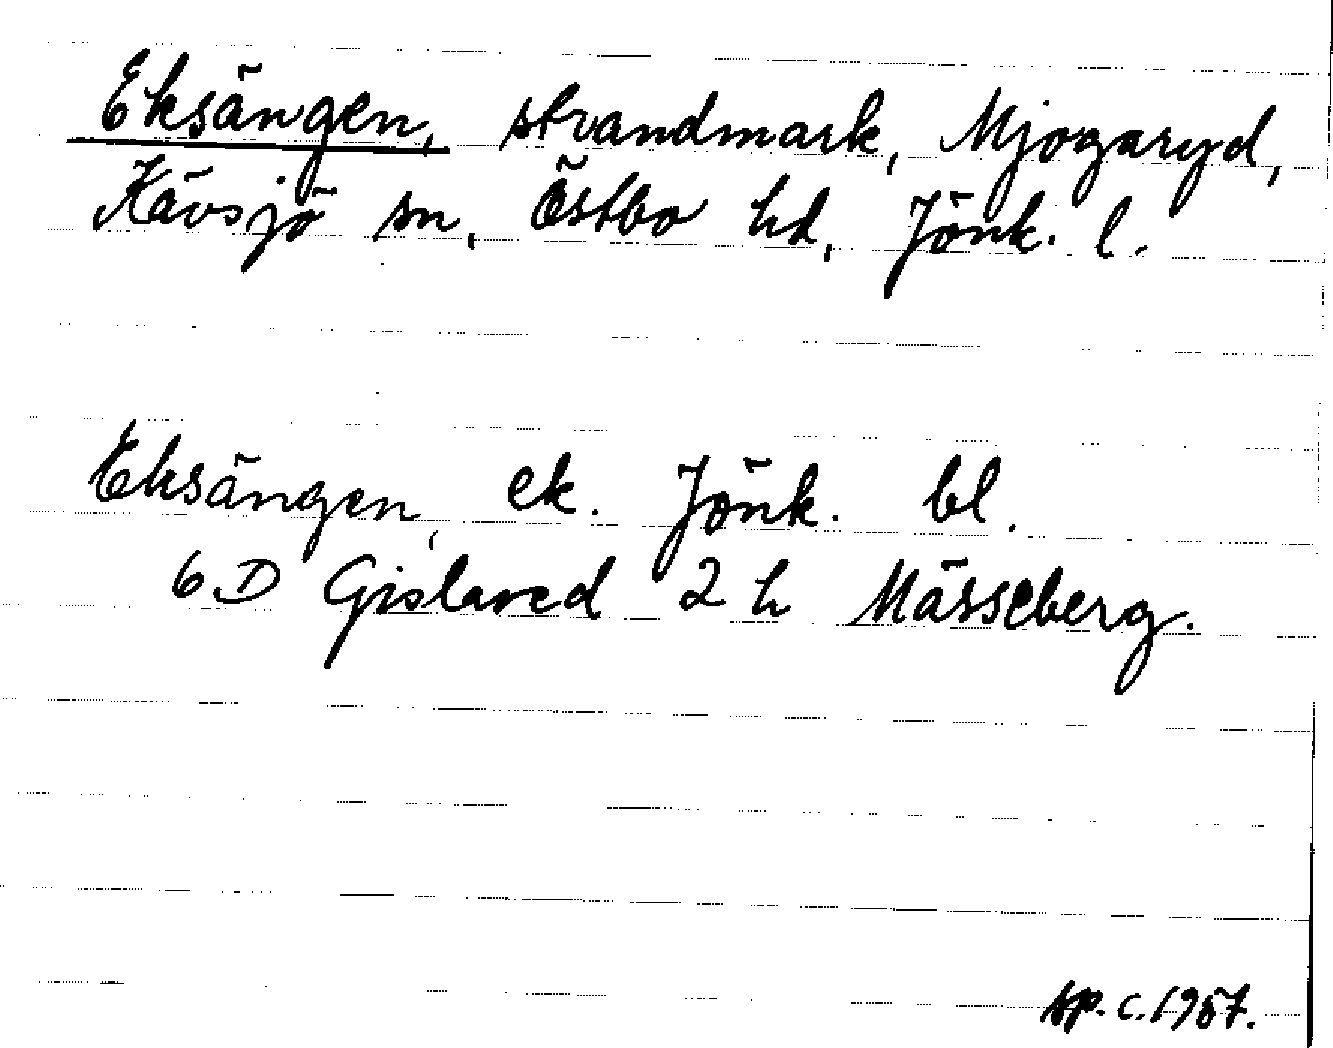 Eksängen, strandmark, Mjogaryd,
Kävsjö sn, Östbo hd, Jönk. l.
Eksängen, ek. Jönk. bl.
6 D Gislaved 2 h Mässeberg.
sp. c. 1957.